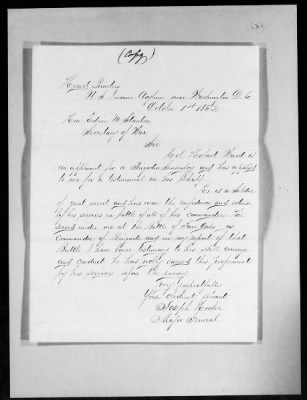 (Copy)
Head Quarters
U.S. Insane Asylum near Washington D.C.
October 1st 1862
Hon. Edwin M. Stanton
Secretary of War
Sir
Col. Hobart Ward is
an applicant for a Brigadier Generalcy and has applied
to me for a testimonial in his behalf.
He is a Soldier
of great merit and has won the confidence and esteem
of his services in battle of all of his Commanders. He
served under me at the Battle of Fair Oaks as
Commander of Brigade and in my report of that
Battle I have borne testimony to his noble courage
and conduct he has nobly earned this preferment
by his services before the enemy
Very respectfully
Your obedient Servant
Joseph Hooker
Major General